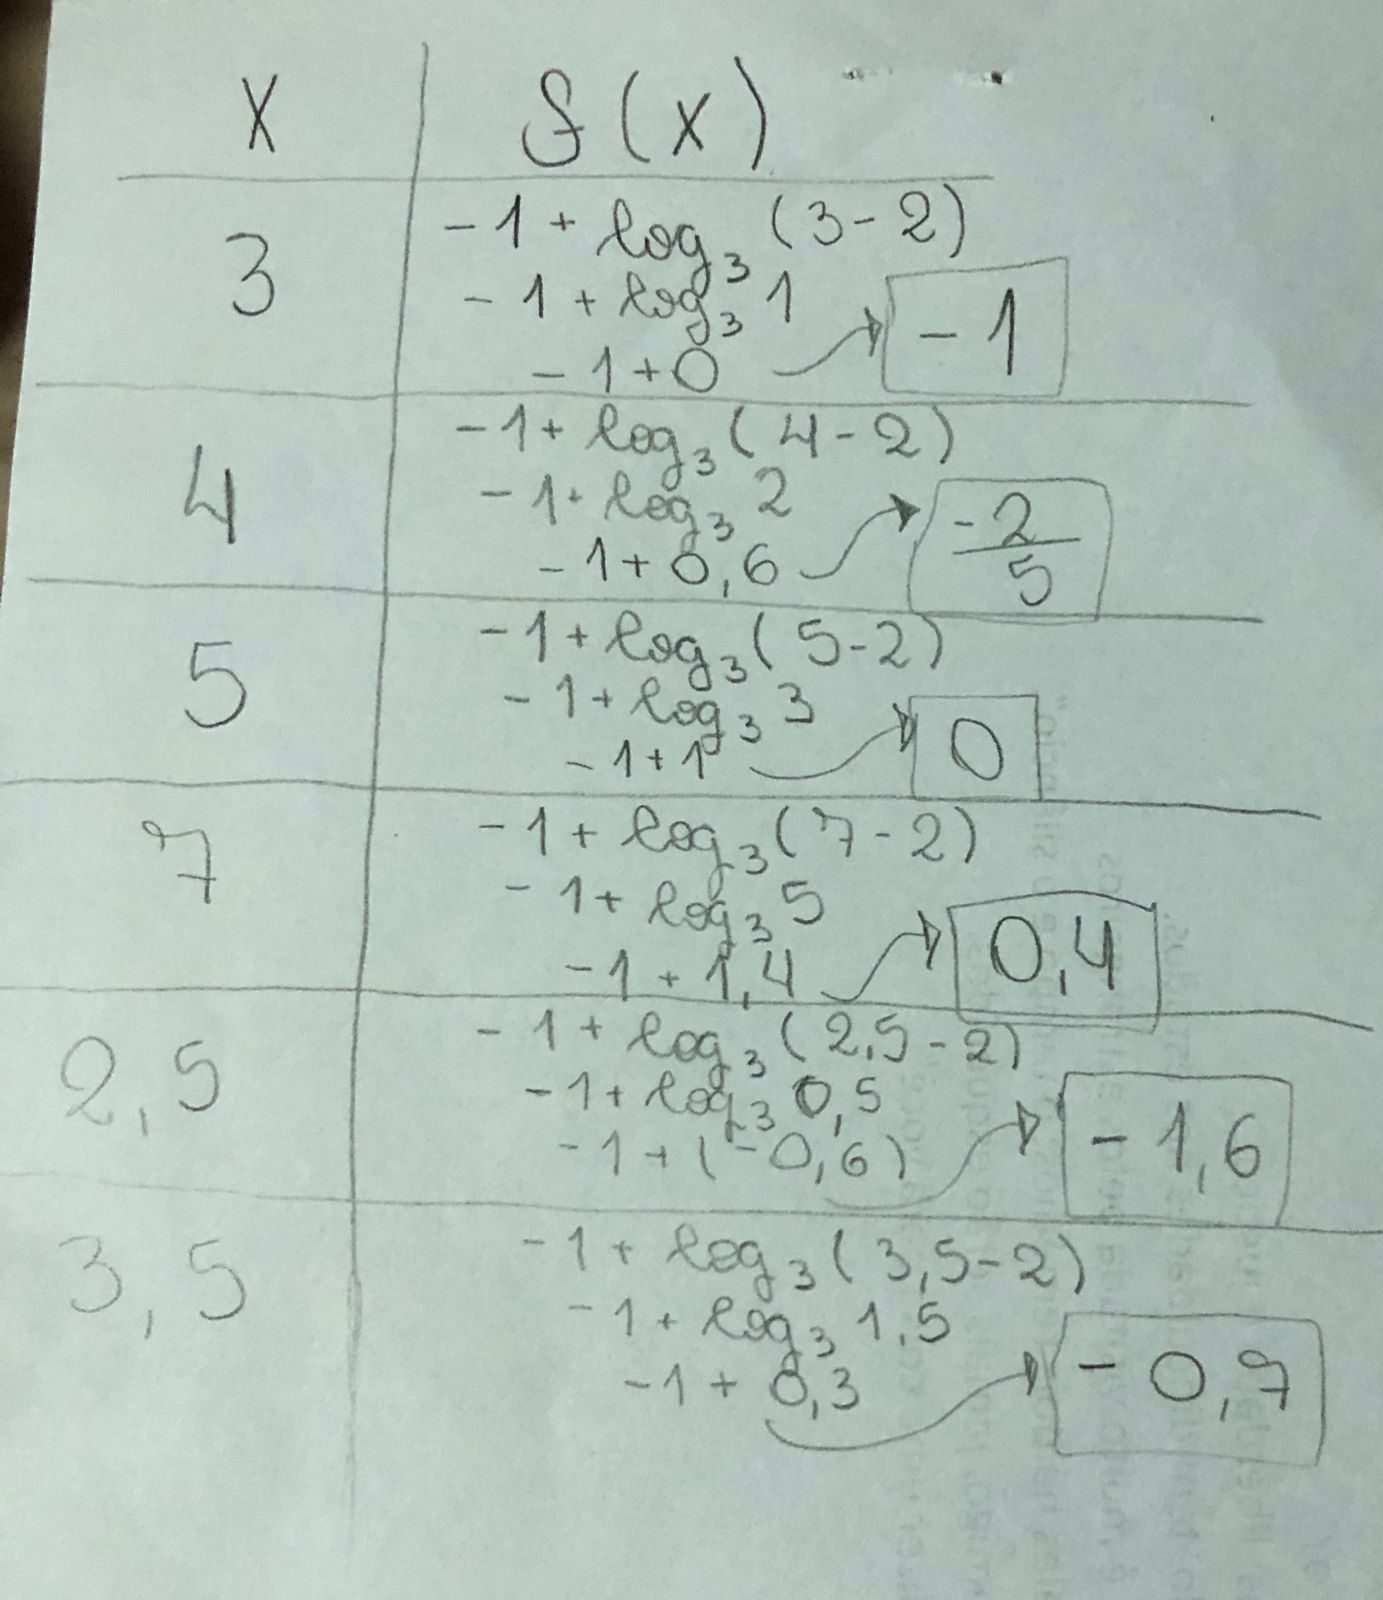 x f(x)
3
-1 + log₃ (3-2)
-1 + log₃ 1
-1+0 → -1
4
-1+ log₃ (4-2)
-1+ log₃ 2
-1+0,6 → -2/5
5
-1+ log₃ (5-2)
-1+ log₃ 3
-1+1 → 0
7
-1+ log₃ (7-2)
-1+ log₃ 5
-1+1,4 → 0,4
2,5
-1+ log₃ (2,5-2)
-1+ log₃ 0,5
-1+(-0,6) → -1,6
3,5
-1+ log₃ (3,5-2)
-1+ log₃ 1,5
-1+ 0,3 → -0,7